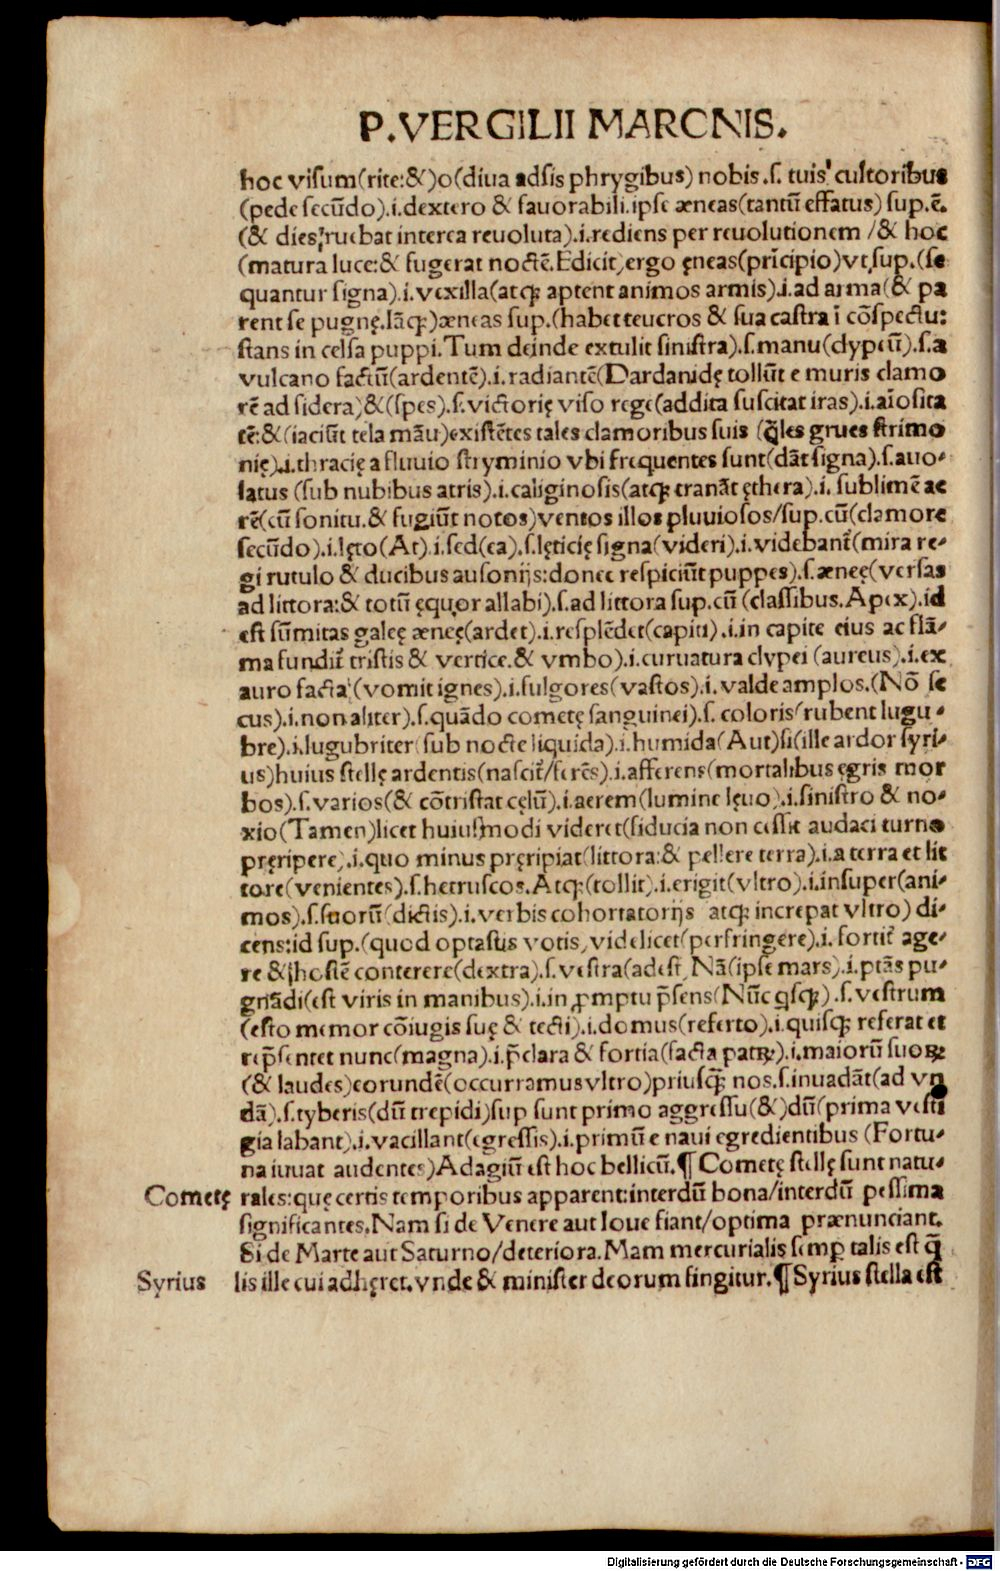 P.VERGILII MARCNIS.
hoc visum(rite:&)o(diua adsis phrygibus) nobis.s. tuis cultoribus
(pede secūdo).i.dextero & fauorabili.ipse æneas(tantū effatus) sup.ē.
(& dies ruebat interea reuoluta).i.rediens per reuolutionem /& hoc
(matura luce:& fugerat noctē.Edicit)ergo ęneas(prīcipio)vt sup.(se
quantur signa).i.vexilla(atqꝫ aptent animos armis).i.ad arma(& pa
rent se pugnę.Iāqꝫ)æneas sup.(habet teucros & sua castra ī cōspectu:
stans in celsa puppi.Tum deinde extulit sinistra).s.manu(clypeū).s.a
vulcano factū(ardentē).i.radiantē(Dardanidę tollūt e muris clamo
rē ad sidera)&(spes).s.victorię viso rege(addita suscitat iras).i.aīosita
tē:&(iaciūt tela māu)existētes tales clamoribus suis (q̄les grues strimo
nię).i.thracię a fluuio stryminio vbi frequentes sunt(dāt signa).s.auo-
latus (sub nubibus atris).i.caliginosis(atqꝫ tranāt ęthera).i. sublimē ae
rē(cū sonitu.& fugiūt notos)ventos illos pluuiosos/sup.cū(clamore
secūdo).i.lęto(At).i.sed(ea).s.lęticię signa(videri).i.videbant᷑(mira re-
gi rutulo & ducibus ausonijs:donec respiciūt puppes).s.æneę(versas
ad littora:& totū ęquor allabi).s.ad littora sup.cū (classibus.Apex).id
est sūmitas galeę æneę(ardet).i.resplēdet(capiti).i.in capite eius ac flā-
ma fundit᷑ tristis & vertice.& vmbo).i.curuatura clypei (aureus).i.ex
auro facta (vomit ignes).i.fulgores(vastos).i.valde amplos.(Nō se
cus).i.non aliter).s.quādo cometę sanguinei).s. coloris(rubent lugu-
bre).i.lugubriter(sub nocte liquida).i.humida(Aut)si(ille ardor syri-
us)huius stellę ardentis(nascit᷑/ferēs).i.afferens(mortalibus ęgris mor
bos).s.varios(& cōtristat cęlū).i.aerem(lumine lęuo).i.sinistro & no-
xio(Tamen)licet huiusmodi videret(fiducia non cessit audaci turno
pręripere).i.quo minus pręripiat(littora:& pellere terra).i.a terra et lit
tore(venientes).s.hetruscos.Atqꝫ(tollit).i.erigit(vltro).i.insuper(ani-
mos).s.suorū(dictis).i.verbis cohortatorijs atqꝫ increpat vltro) di-
cens:id sup.(quod optastis votis,videlicet(perfringere).i. fortit᷑ age-
re & hostē conterere(dextra).s.vestra(adest, Nā(ipse mars).i.ptās pu-
gnādi(est viris in manibus).i.in ꝓmptu p̄sens(Nūc qsqꝫ).s.vestrum
(esto memor cōiugis suę & tecti).i.domus(referto).i.quisqꝫ referat et
rep̄sentet nunc(magna).i.p̄clara & fortia(facta patꝝ).i.maiorū suoꝝ
(& laudes)eorundē(occurramus vltro)priusq̄ꝫ nos.s.inuadāt(ad vn
dā).s.tyberis(dū trepidi)sup sunt primo aggressu(&)dū(prima vesti
gia labant).i.vacillant(egressis).i.primū e naui egredientibus (Fortu-
na iuuat audentes)Adagiū est hoc bellicū.¶ Cometę stellę sunt natu-
Cometę rales:quę certis temporibus apparent:interdū bona/interdū pessima
significantes.Nam si de Venere aut Ioue fiant/optima prænunciant.
Si de Marte aut Saturno/deteriora.Mam mercurialis semꝑ talis est q̄
Syrius lis ille cui adhęret.vnde & minister deorum fingitur.¶Syrius stella est
Digitalisierung gefördert durch die Deutsche Forschungsgemeinschaft - DFG